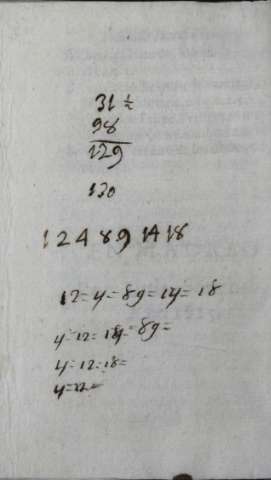 31 ½
98
129
130
1 2 4 89 14 18
12 = 4 = 89 = 14 = 18
4 = 12 = 14 = 89 =
4 = 12 = 18 =
4 = 12 =